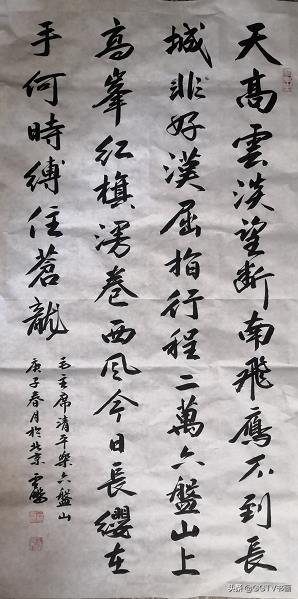 天高雲淡望斷南飛鴈不到長
城非好漢屈指行程二萬六盤山上
高峯紅旗漫卷西风今日長纓在
手何時縛住蒼龍
毛主席清平樂六盤山
庚子春月於北京
头条@GGTV书画